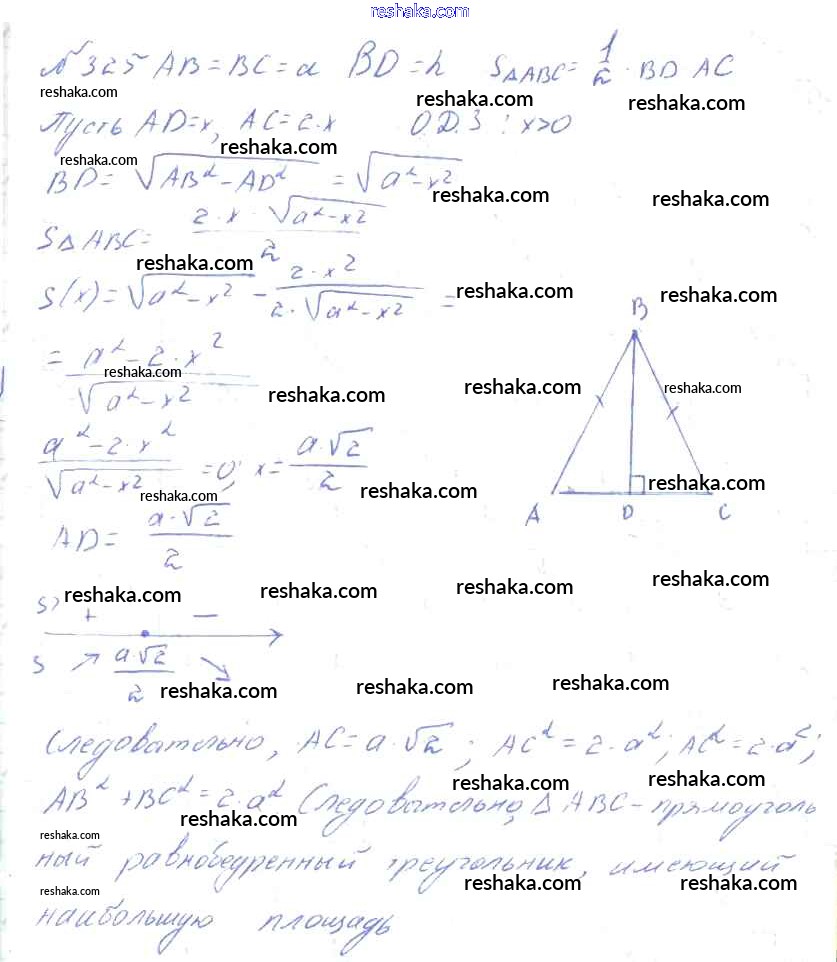 reshaka.com
№ 325 AB = BC = a BD = h S△ABC = 1/2 · BD AC
reshaka.com reshaka.com reshaka.com
Пусть AD = x, AC = 2·x О.Д.З : x>0
reshaka.com reshaka.com
BD = √(AB² - AD²) = √(a² - x²)
reshaka.com reshaka.com
S△ABC = (2·x·√(a² - x²))/2
reshaka.com
S(x) = √(a² - x²) - (2·x²)/(2·√(a² - x²)) =
reshaka.com reshaka.com
B
= (a² - 2·x²)/√(a² - x²)
reshaka.com reshaka.com reshaka.com reshaka.com
(a² - 2·x²)/√(a² - x²) = 0; x = (a·√2)/2
reshaka.com reshaka.com reshaka.com
A D C
AD = (a·√2)/2
reshaka.com reshaka.com reshaka.com reshaka.com
S' + −
S ↗ (a·√2)/2 ↘
reshaka.com reshaka.com reshaka.com
Следовательно, AC = a·√2; AC² = 2·a²; AC² = 2·a²;
reshaka.com reshaka.com
AB² + BC² = 2·a² Следовательно, △ ABC - прямоуголь
reshaka.com reshaka.com
ный равнобедренный треугольник, имеющий
reshaka.com reshaka.com reshaka.com
наибольшую площадь